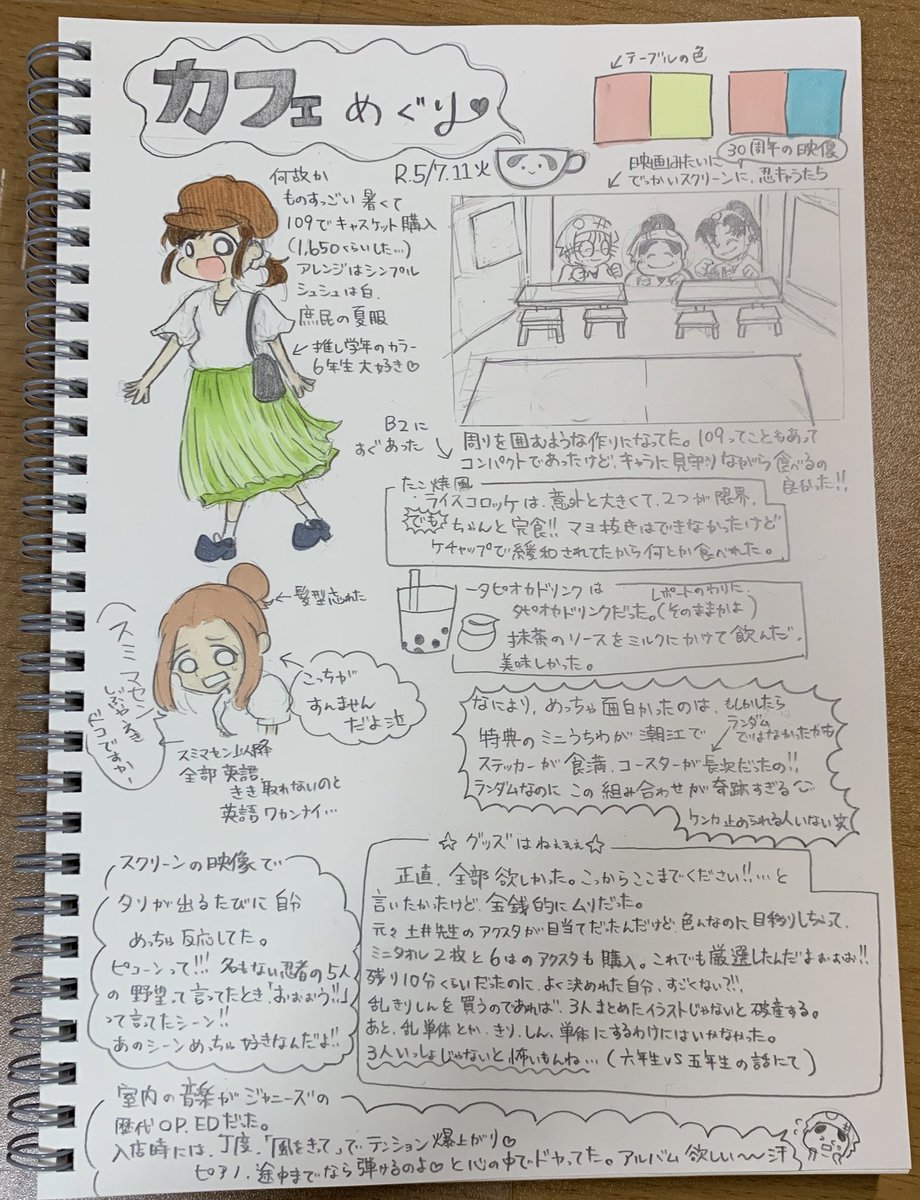 カフェめぐり♥
R.5/7.11火
↙テーブルの色
30周年の映像
映画みたいに
でっかいスクリーンに、忍たまたち
何故か
ものすっごい暑くて
109でキャスケット購入
(1,650くらいした…)
アレンジはシンプル
シュシュは白、
庶民の夏服
↙推し学年のカラー
6年生大好き♡
B2に
すぐあった
周りを囲むような作りになってた。109ってこともあって
コンパクトであったけど、キャラに見守りながら食べるの
良かった!!
たこ焼風
ライスコロッケは、意外と大きくて、2つが限界、
でもちゃんと完食!! マヨ抜きはできなかったけど
ケチャップで緩和されてたから何とか食べれた。
タピオカドリンクは
レポートのわりに、
タピオカドリンクだった。(そのままかよ)
抹茶のソースをミルクにかけて飲んだ。
美味しかった。
←髪型忘れた
スミマセン
しぶやえき
ドコですか?
こっちが
すんません
だよ泣
スミマセン以降
全部英語、
きき取れないのと
英語ワカンナイ…
なにより、めっちゃ面白かったのは、
もしかしたら
ランダム
ではなかったかも
特典のミニうちわが潮江で
ステッカーが食満、コースターが長次だったの!!
ランダムなのにこの組み合わせが奇跡すぎる
ケンカ止められる人いない笑
スクリーンの映像で
タリが出るたびに自分
めっちゃ反応してた。
ピコーンって!!! 名もない忍者の5人
の野望って言ってたとき「おぉぉぅ!!」
って言ってたシーン!!
あのシーンめっちゃ好きなんだよ!!
☆グッズはねぇぇぇ☆
正直、全部欲しかった。こっからここまでください!!…と
言いたかったけど、金銭的にムリだった。
元々土井先生のアクスタが目当てだったんだけど、色んなのに目移りしちゃって、
ミニタオル2枚と6はのアクスタも購入。これでも厳選したんだよぉぉお!!
残り10分くらいだったのに、よく決めれた自分、すごくない?!!
乱きりしんを買うのであれば、3人まとめたイラストじゃないと破産する。
あと、乱単体とか、きり、しん、単体にするわけにはいかなかった。
3人いっしょじゃないと怖いもんね…(六年生VS五年生の話にて)
室内の音楽がジャニーズの
歴代OP.EDだった。
入店時には、丁度、「風をきって」でテンション爆上がり♡
ピアノ、途中までなら弾けるのよ♡と心の中でドヤってた。アルバム欲しい〜〜汗